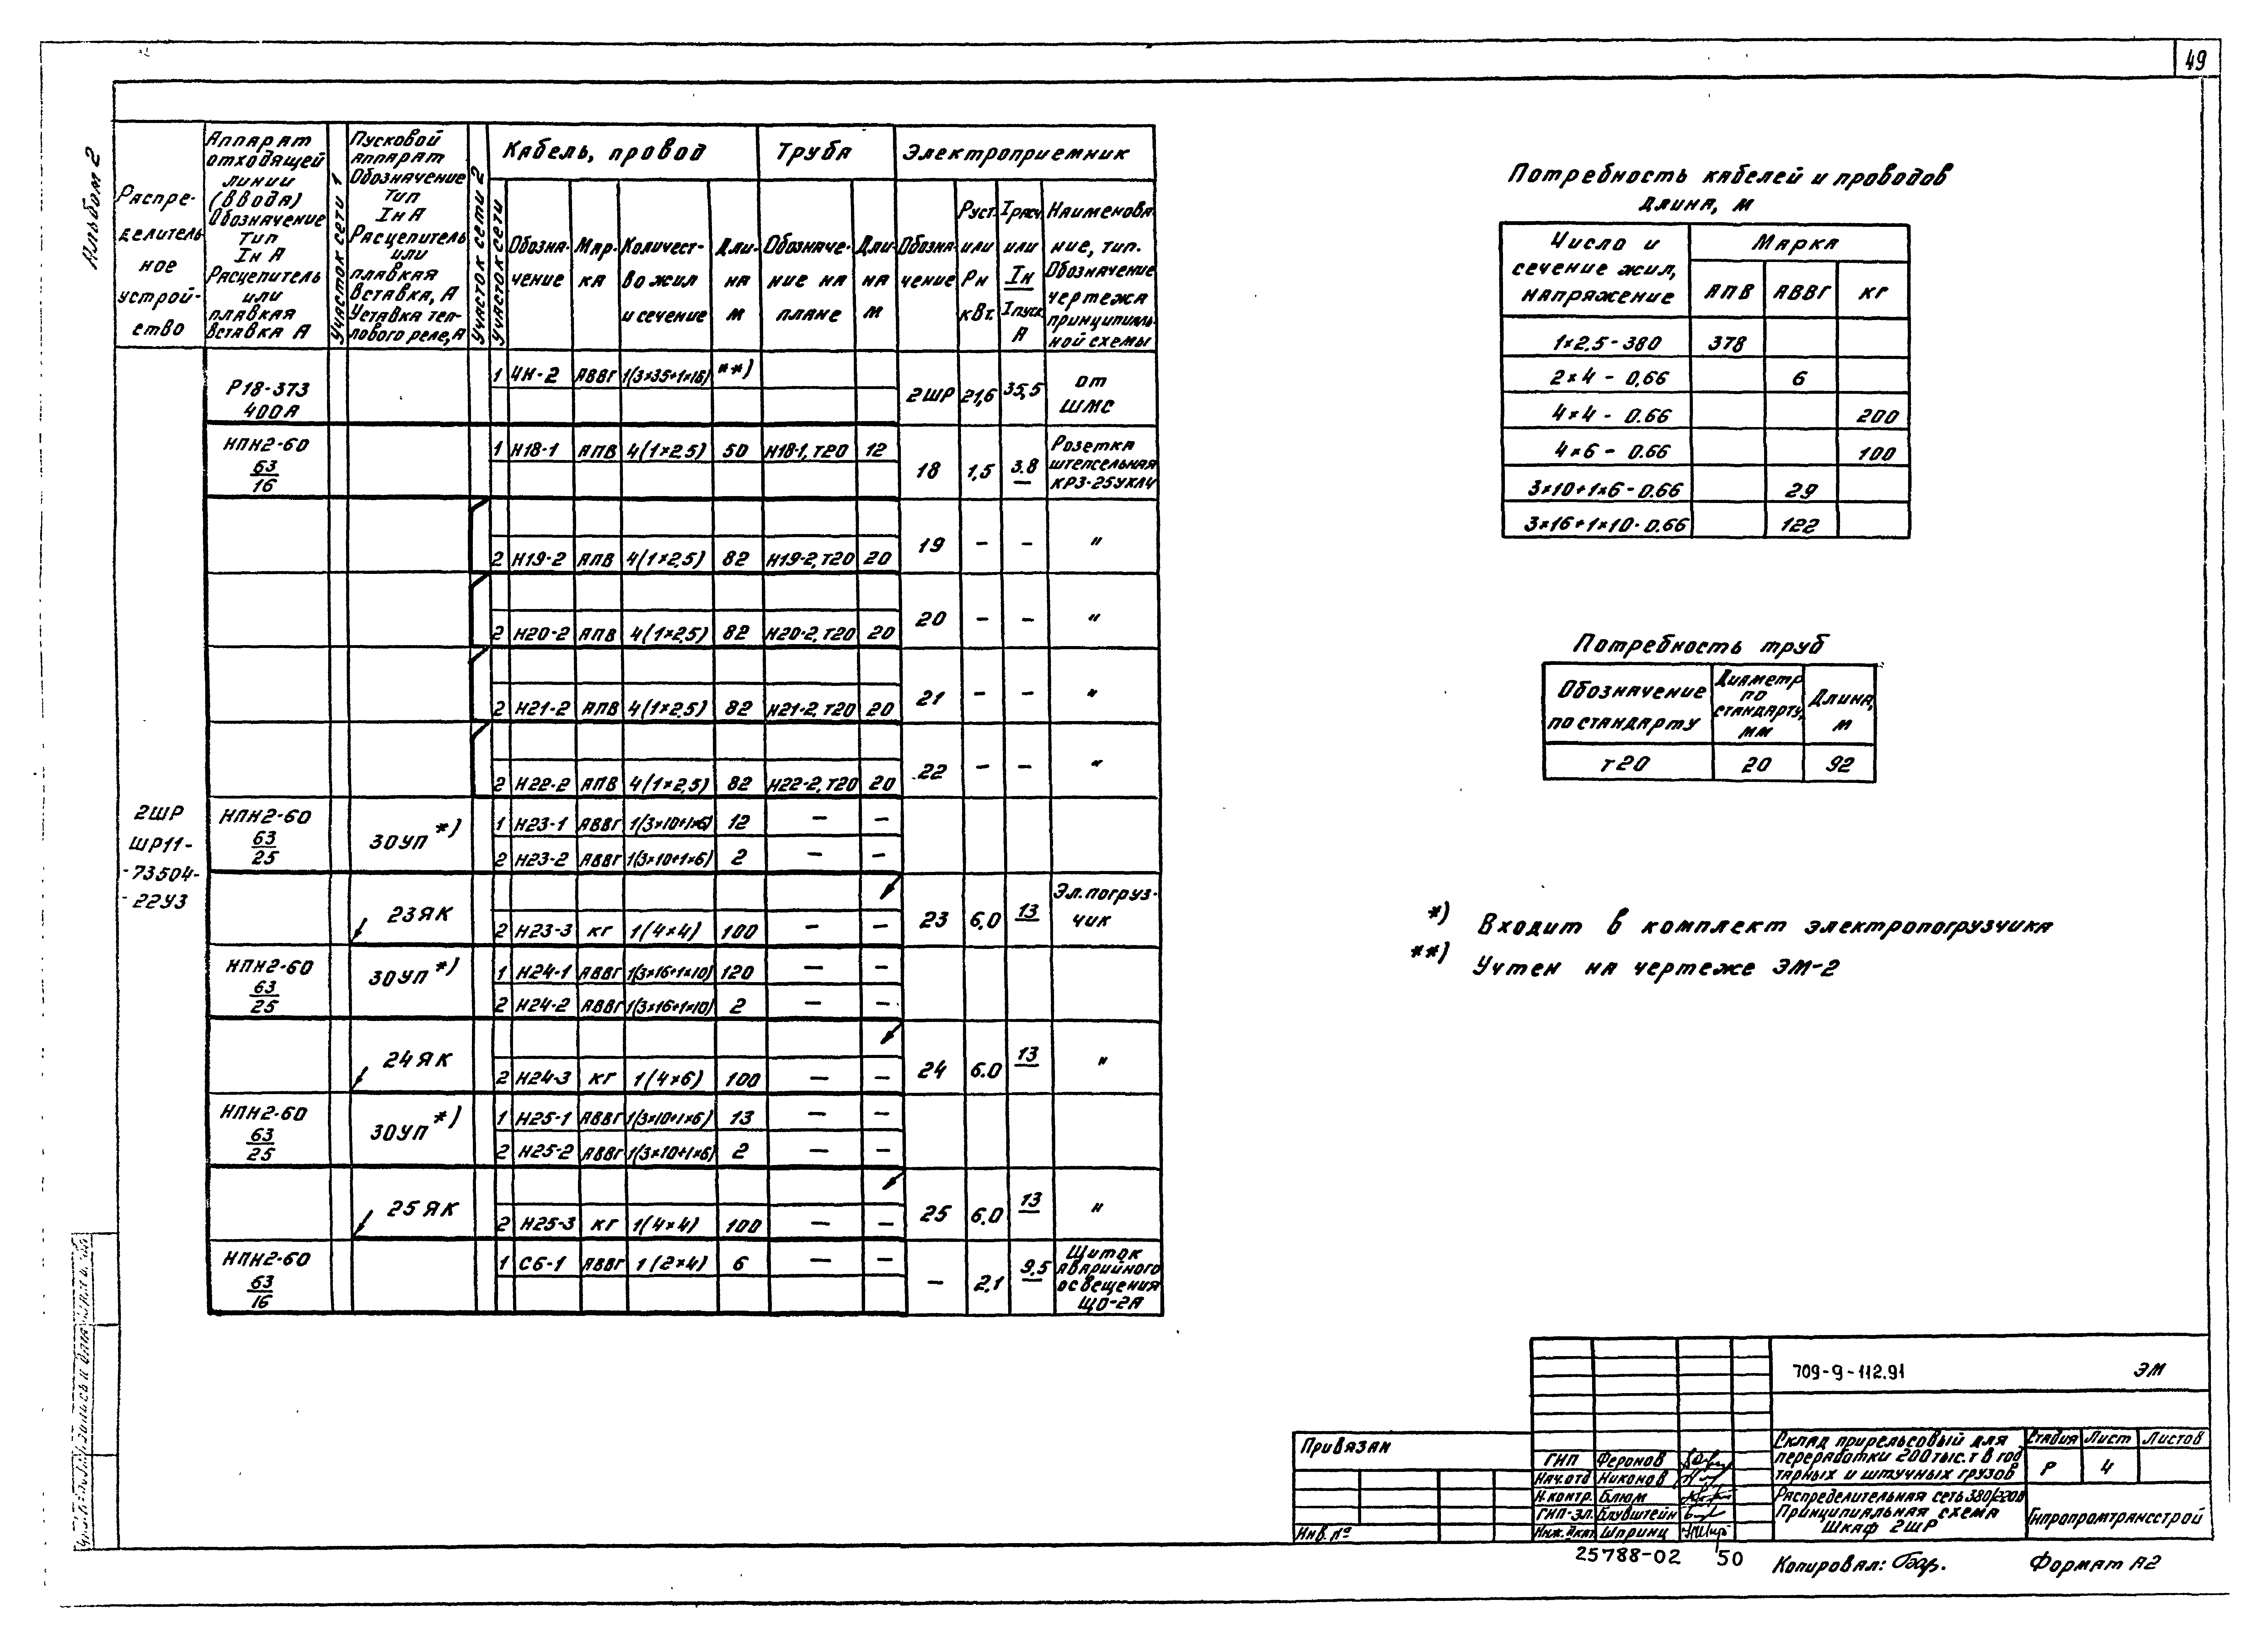 49
Альбом 2
Распре-
делитель
ное
устрой-
ство
Аппарат
отходящей
линии
(ввода)
Обозначение
Тип
Iн А
Расцепитель
или
плавкая
вставка А
Участок сети 1
Пусковой
аппарат
Обозначение
Тип
Iн А
Расцепитель
или
плавкая
вставка, А
Уставка теп-
лового реле, А
Участок сети 2
Участок сети
Кабель, провод
Обозна-
чение
Мар-
ка
Количест-
во жил
и сечение
Дли-
на
м
Труба
Обозначе-
ние на
плане
Дли-
на
м
Электроприемник
Обозна-
чение
Руст.
или
Рн
кВт.
Iрасч.
или
Iн
Iпуск.
А
Наименова
ние, тип.
Обозначение
чертежа
принципиаль-
ной схемы
2ШР
ШР11-
-73504-
-22У3
Р18-373
400А
1 ЧН-2 АВВГ 1(3×35+1×16) **)
2ШР 21,6 35,5 от
ШМС
НПН2-60
63
16
1 Н18-1 АПВ 4(1×2,5) 50 Н18-1, Т20 12
18 1,5 3.8 Розетка
штепсельная
КРЗ-25УХЛ4
2 Н19-2 АПВ 4(1×2,5) 82 Н19-2, Т20 20
19 – – "
2 Н20-2 АПВ 4(1×2,5) 82 Н20-2, Т20 20
20 – – "
2 Н21-2 АПВ 4(1×2,5) 82 Н21-2, Т20 20
21 – – "
2 Н22-2 АПВ 4(1×2,5) 82 Н22-2, Т20 20
22 – – "
НПН2-60
63
25
30УП *)
1 Н23-1 АВВГ 1(3×10+1×6) 12 – –
2 Н23-2 АВВГ 1(3×10+1×6) 2 – –
23ЯК
2 Н23-3 КГ 1(4×4) 100 – –
23 6,0 13 Эл. погруз-
чик
НПН2-60
63
25
30УП *)
1 Н24-1 АВВГ 1(3×16+1×10) 120 – –
2 Н24-2 АВВГ 1(3×16+1×10) 2 – –
24ЯК
2 Н24-3 КГ 1(4×6) 100 – –
24 6.0 13 "
НПН2-60
63
25
30УП *)
1 Н25-1 АВВГ 1(3×10+1×6) 13 – –
2 Н25-2 АВВГ 1(3×10+1×6) 2 – –
25ЯК
2 Н25-3 КГ 1(4×4) 100 – –
25 6.0 13 "
НПН2-60
63
16
1 С6-1 АВВГ 1(2×4) 6 – –
– 2,1 9,5 Щиток
аварийного
освещения
ЩО-2А
Потребность кабелей и проводов
длина, м
Число и
сечение жил,
напряжение
Марка
АПВ АВВГ КГ
1×2,5-380 378
2×4 - 0,66 6
4×4 - 0.66 200
4×6 - 0.66 100
3×10+1×6-0.66 29
3×16+1×10-0.66 122
Потребность труб
Обозначение
по стандарту
Диаметр
по
стандарту,
мм
Длина,
м
т20 20 92
*) Входит в комплект электропогрузчика
**) Учтен на чертеже ЭМ-2
709-9-112.91 ЭМ
Привязан
Инв. №
ГИП Феронов
Нач.отд Никонов
Н.контр. Блюм
ГИП-эл. Блувштейн
Инж.Iкат. Шпринц
Склад прирельсовый для
переработки 200 тыс. т в год
тарных и штучных грузов
Стадия Лист Листов
Р 4
Распределительная сеть 380/220В
Принципиальная схема
Шкаф 2ШР
Гипропромтрансстрой
25788-02 50
Копировал:
Формат А2